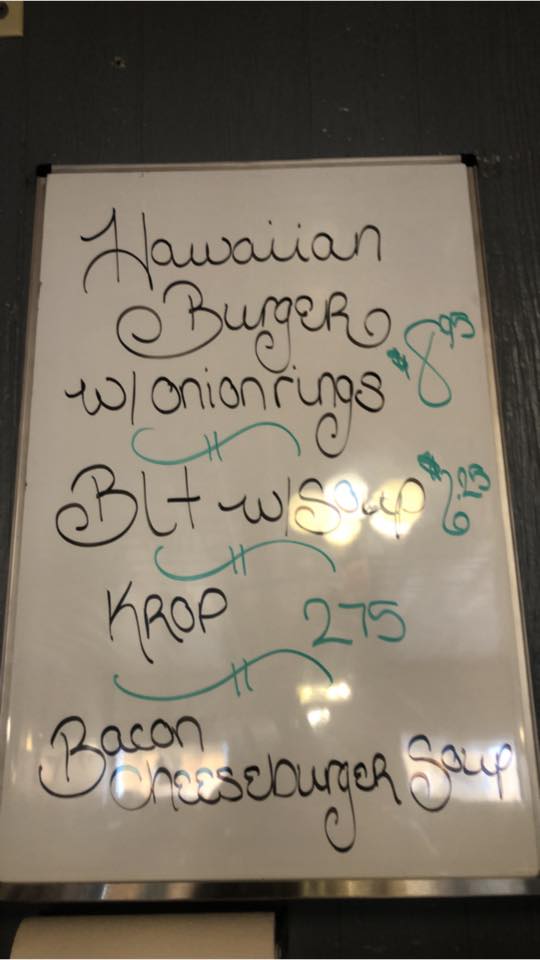 Hawaiian
Burger
w/ onion rings $8.95
Blt w/ Soup $6.25
KROP 275
Bacon
Cheeseburger Soup